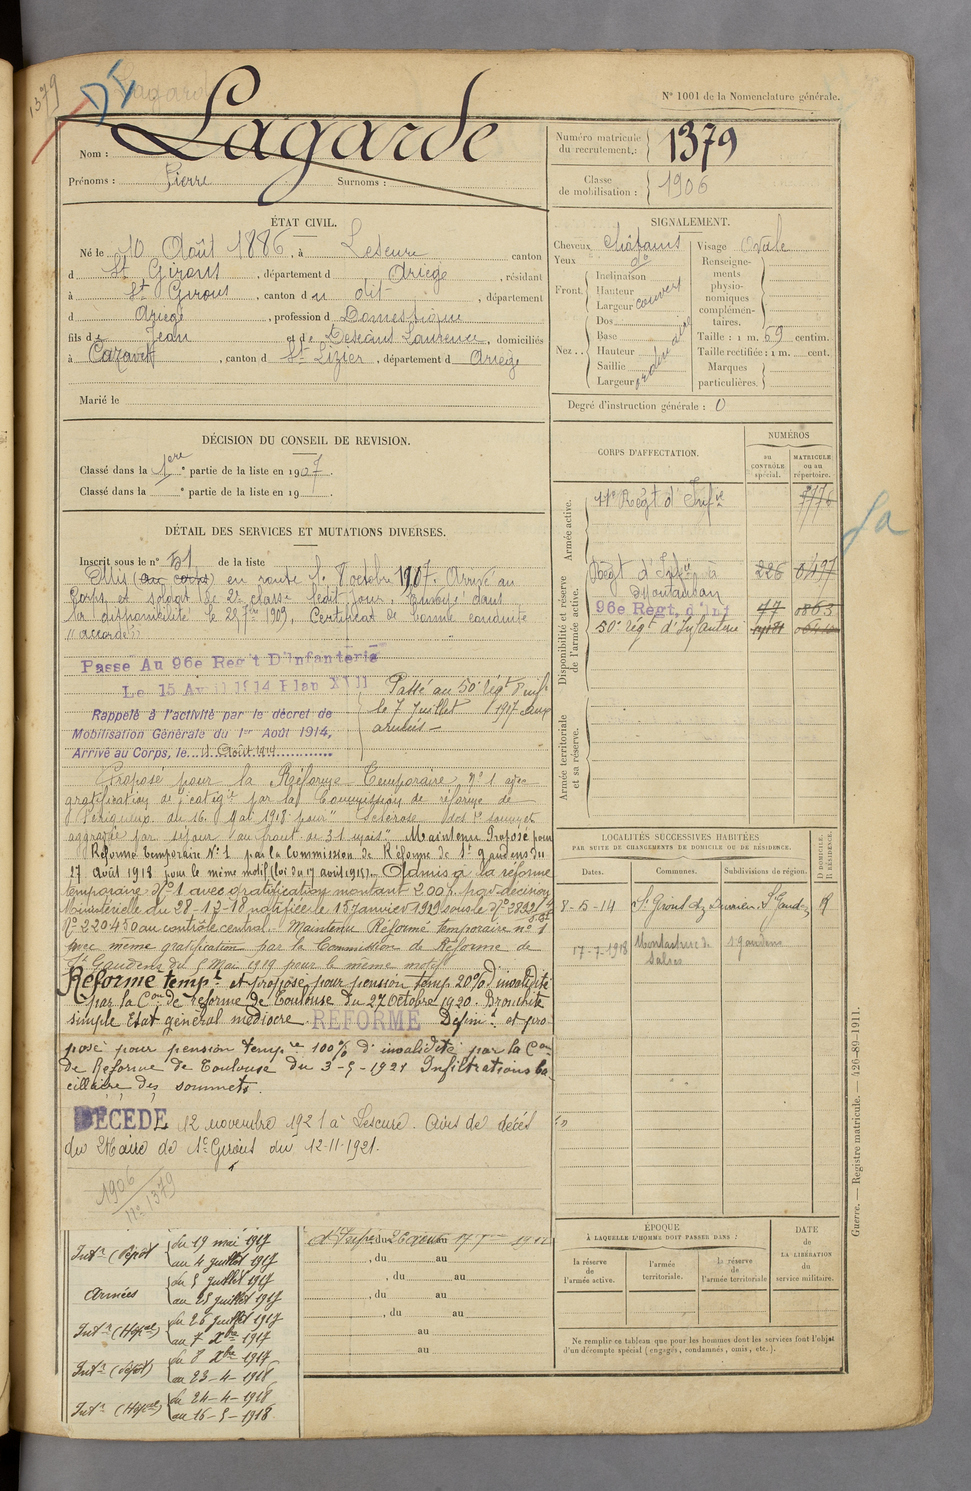 1379
Lagarde
N° 1001 de la Nomenclature générale.
Nom : Lagarde
Prénoms : Pierre Surnoms :
Numéro matricule du recrutement : 1379
Classe de mobilisation : 1906
ÉTAT CIVIL.
Né le 10 Août 1886, à Lescure canton
d St Girons, département d Ariège, résidant
à St Girons, canton d u dit, département
d Ariège, profession d Domestique
fils de Jean et de Laurence, domiciliés
à, canton d St Lizier, département d Ariège
Marié le
SIGNALEMENT.
Cheveux châtains Visage Ovale
Yeux do
Front. Inclinaison
Hauteur
Largeur couvert
Nez.. Dos
Base
Hauteur
Saillie
Largeur
Renseignements physionomiques complémentaires.
Taille : 1 m. 69 centim.
Taille rectifiée : 1 m. cent.
Marques particulières.
Degré d'instruction générale : 0
DÉCISION DU CONSEIL DE REVISION.
Classé dans la 1ere partie de la liste en 1907.
Classé dans la e partie de la liste en 19
CORPS D'AFFECTATION.
NUMÉROS
au CONTRÔLE spécial.
MATRICULE ou au répertoire.
Armée active.
Regt d'Infie
Disponibilité et réserve de l'armée active.
Regt d'Infie à 226
Montauban
96e Regt. d'Inf 47 0863
50e régt d'Infanterie
Armée territoriale et sa réserve.
DÉTAIL DES SERVICES ET MUTATIONS DIVERSES.
Inscrit sous le n° 51 de la liste
Mis (au corps) en route le 8 octobre 1907. Arrivé au
Corps et soldat de 2e classe ledit jour. Envoyé dans
la disponibilité le 28 7bre 1909. Certificat de bonne conduite
"accordé"
Passe Au 96e Reg't D'Infanterie
Le 15 Avril 1914 Plan XVII
Passé au 50e régt d'inf
le 7 Juillet 1917 aux
armées
Rappelé à l'activité par le décret de
Mobilisation Générale du 1er Août 1914,
Arrivé au Corps, le 11 Août 1914
Proposé pour la Réforme Temporaire n° 1 avec
gratification de par la Commission de réforme de
Périgueux du 16 Mai 1918 pour "Sclérose des sommets
aggravée par séjour au front de 31 mois" Maintenu Proposé pour
Réforme temporaire N° 1 par la Commission de Réforme de St gaudens du
17 août 1918 pour le même motif (loi du 17 août 1915). Admis à la réforme
temporaire N° 1 avec gratification montant 200f par décision
Ministérielle du 28-12-18 notifiée le 15 janvier 1919 sous le N°
N° 220450 au contrôle central. Maintenu Réforme temporaire n° 1
avec même gratification par la Commission de Réforme de
St Gaudens du 5 Mai 1919 pour le même motif
Réformé tempt et proposé pour pension temp 20% d'invalidité
par la Con de réforme de Toulouse du 27 Octobre 1920. Bronchite
simple Etat général médiocre. REFORMÉ Défint et pro-
posé pour pension tempre 100% d'invalidité par la Con
de Réforme de Toulouse du 3-5-1921 Infiltrations ba-
cillaire des sommets.
DÉCÉDÉ 12 novembre 1921 à Lescure. Avis de décès
du Maire de St Girons du 12-11-1921.
1906
n° 1379
LOCALITÉS SUCCESSIVES HABITÉES
PAR SUITE DE CHANGEMENTS DE DOMICILE OU DE RÉSIDENCE.
Dates. Communes. Subdivisions de région. D DOMICILE. R RÉSIDENCE.
8-5-14 St Girons St Gaudens R
17-7-1918 Montastruc de Salies S gaudens
Intr (Dépôt) du 19 mai 1917
au 4 juillet 1917
Armées du 5 juillet 1917
au 25 juillet 1917
Intr (Hopal) du 26 juillet 1917
au 7 Xbre 1917
Intr (dépôt) du 8 Xbre 1917
au 23-4-1918
Intr (Hopal) du 24-4-1918
au 16-5-1918
, du au
, du au
, du au
, du au
au
au
ÉPOQUE
À LAQUELLE L'HOMME DOIT PASSER DANS :
la réserve de l'armée active.
l'armée territoriale.
la réserve de l'armée territoriale
DATE DE LA LIBÉRATION du service militaire.
Ne remplir ce tableau que pour les hommes dont les services font l'objet
d'un décompte spécial (engagés, condamnés, omis, etc.).
Guerre. — Registre matricule. — 426-89-1911.